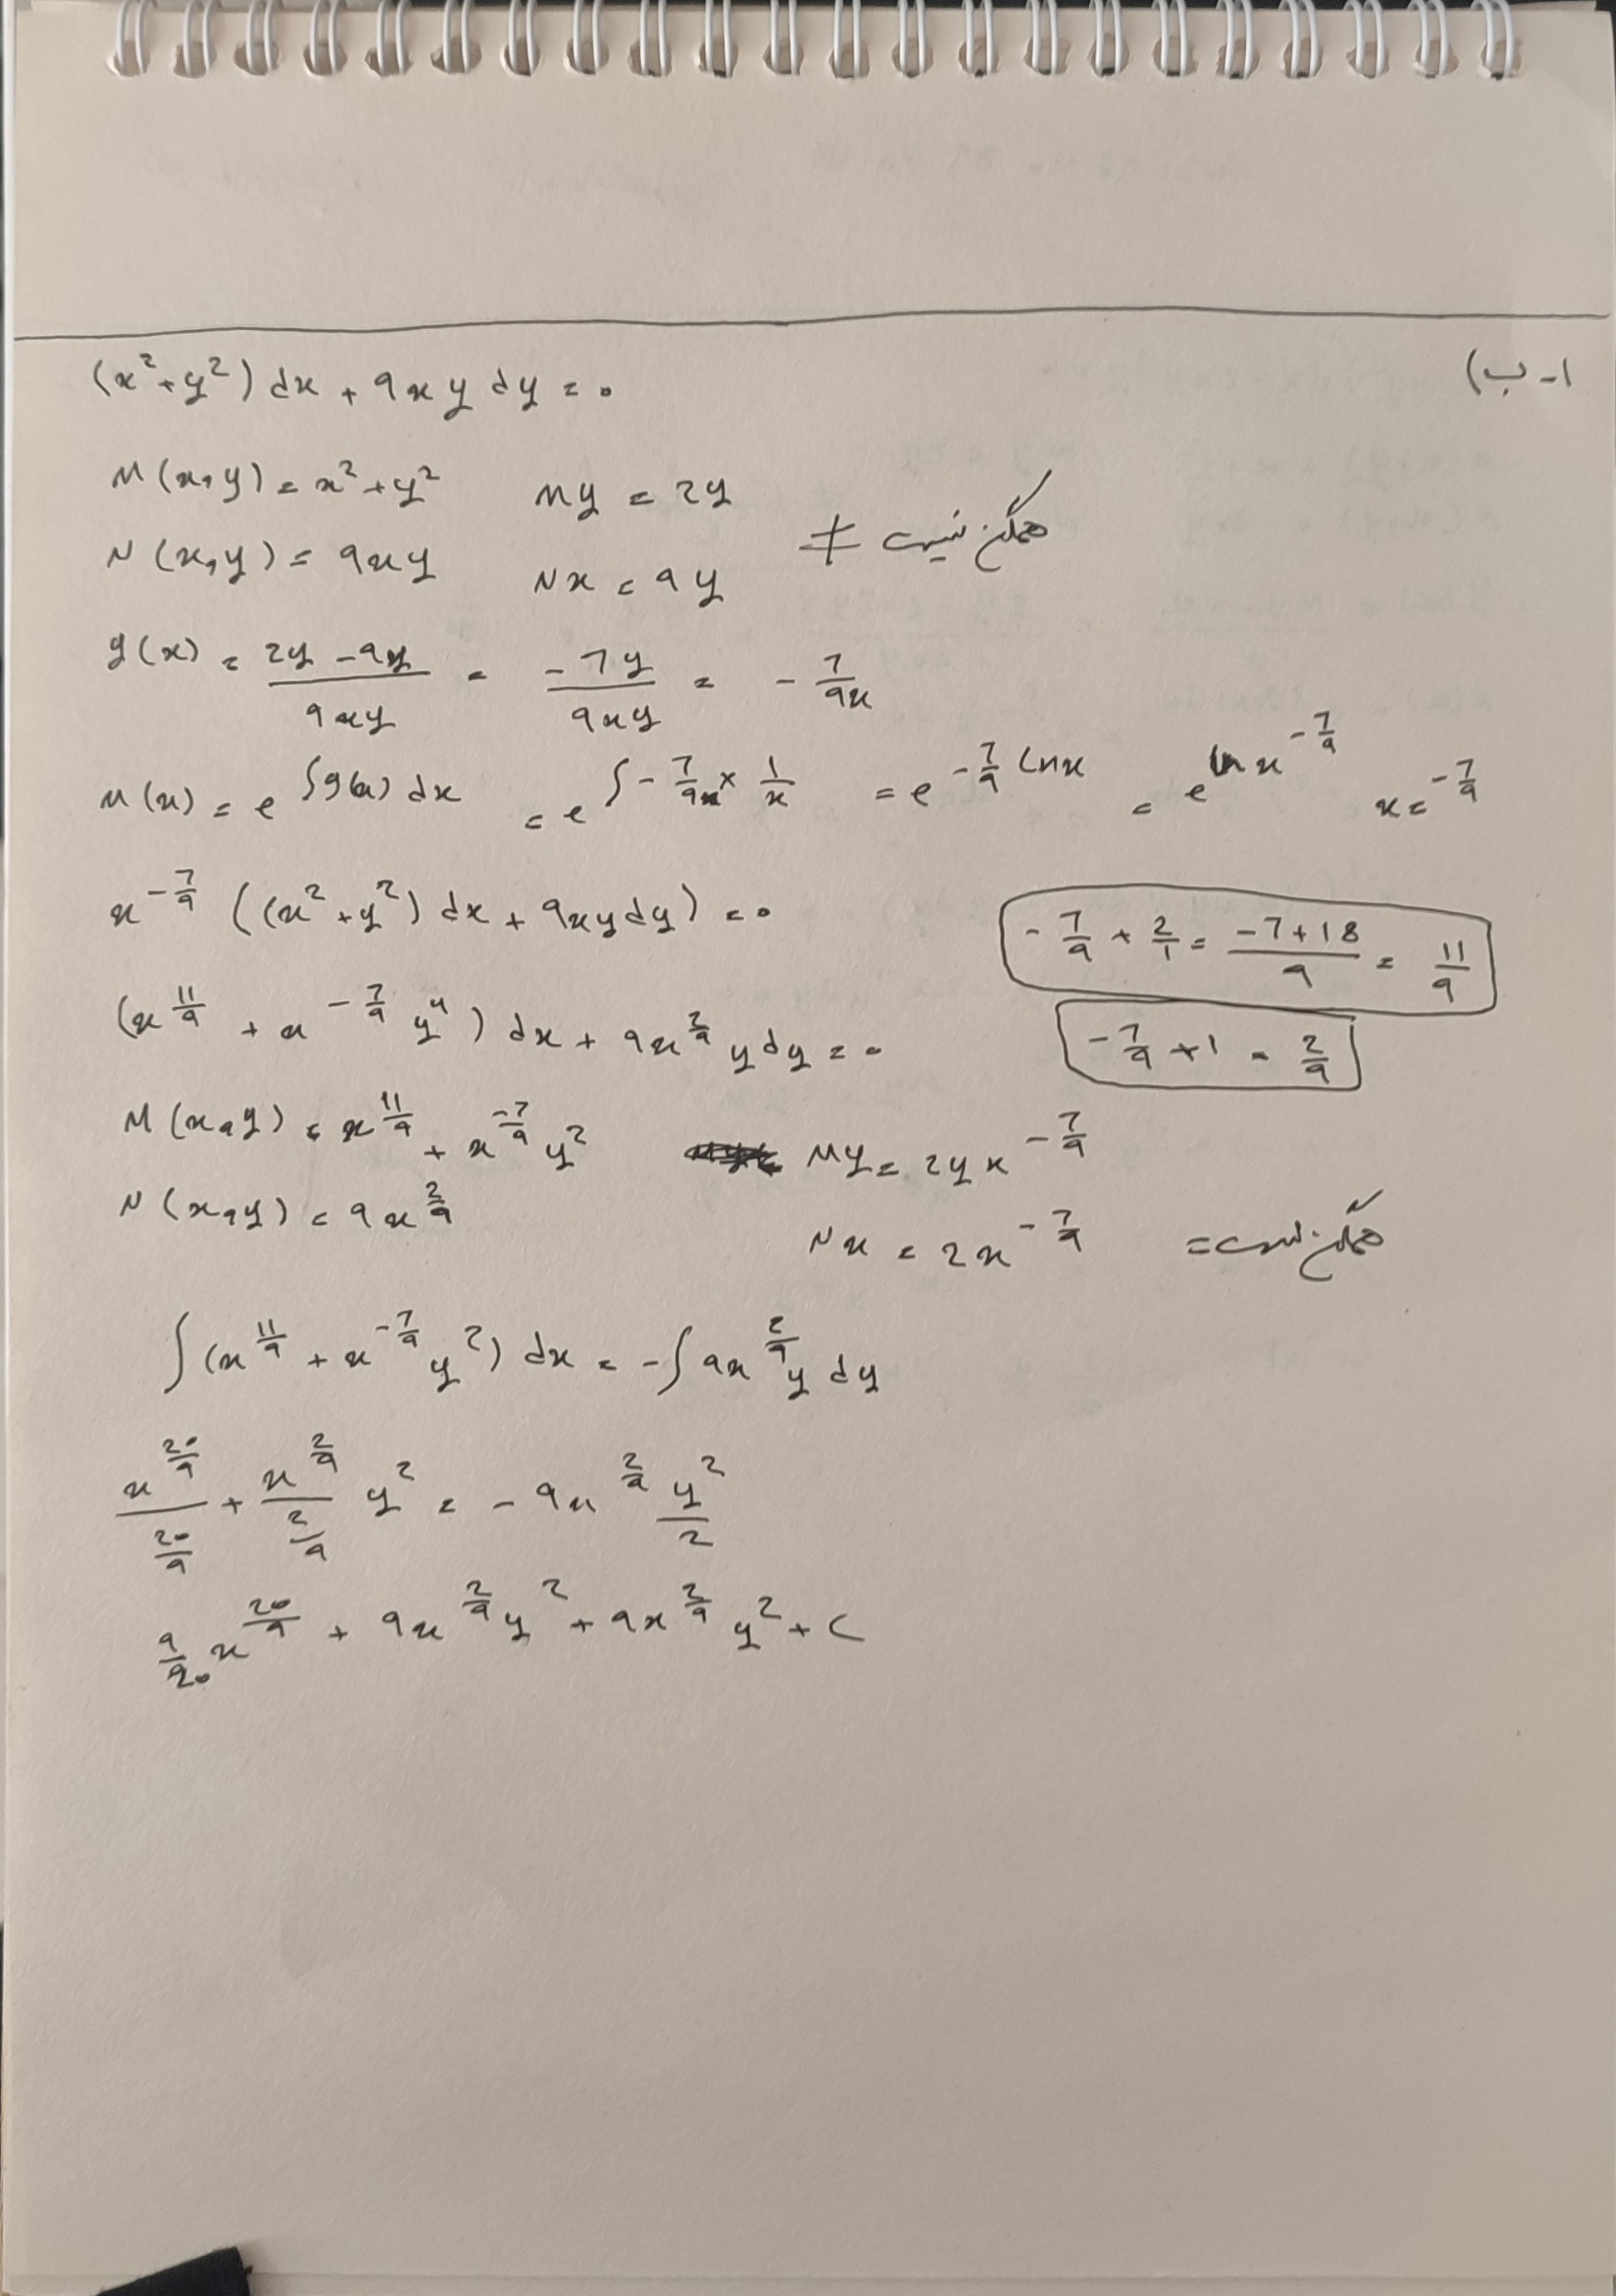 ۱- ب)
(x² + y²) dx + 9xy dy = 0
M(x,y) = x² + y²    My = 2y
≠ همگن نیست
N(x,y) = 9xy    Nx = 9y
g(x) = (2y - 9y)/(9xy) = (-7y)/(9xy) = - 7/(9x)
M(x) = e^(∫g(x) dx) = e^(∫ - 7/9 × 1/x) = e^(-7/9 Lnx) = e^(ln x^(-7/9))    x = -7/9
x^(-7/9) ((x² + y²) dx + 9xydy) = 0
-7/9 + 2/1 = (-7+18)/9 = 11/9
(x^(11/9) + x^(-7/9) y^4) dx + 9x^(2/9) ydy = 0
-7/9 + 1 = 2/9
M(x,y) = x^(11/9) + x^(-7/9) y²    My = 2yx^(-7/9)
N(x,y) = 9x^(2/9)    Nx = 2x^(-7/9)    = همگن است
∫(x^(11/9) + x^(-7/9) y²) dx = -∫9x^(2/9) y dy
x^(20/9)/(20/9) + x^(2/9)/(2/9) y² = - 9x^(2/9) y²/2
9/20 x^(20/9) + 9x^(2/9) y² + 9x^(2/9) y² + C